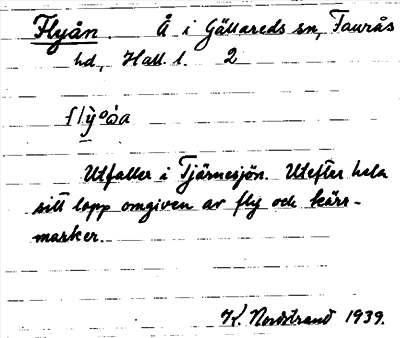 Flyån. Å i Gällareds sn, Faurås
hd, Hall. l. 2
flỳoa̍
Utfaller i Tjärnesjön. Utefter hela
sitt lopp omgiven av fly och kärr-
marker.
K. Nordstrand 1939.